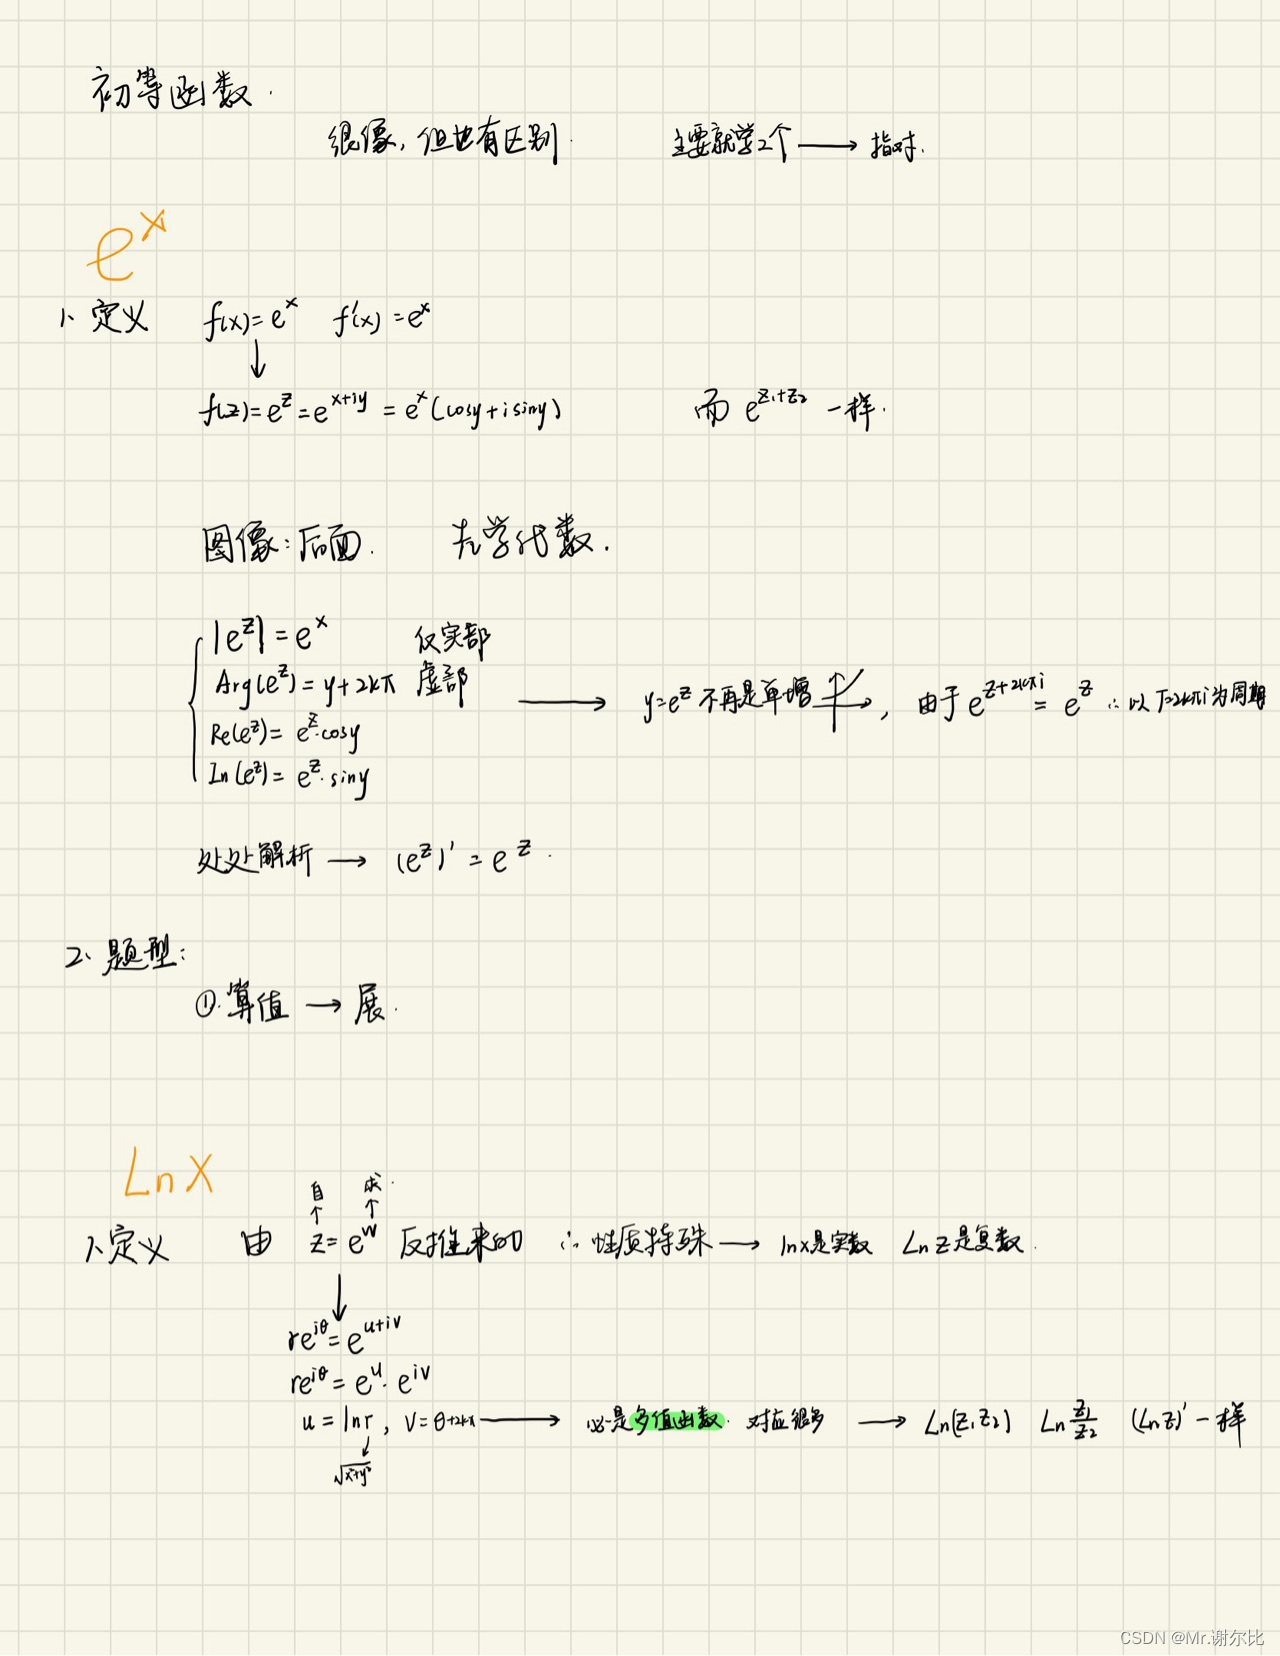 初等函数.
很像，但也有区别. 主要就学2个 → 指对.
e^x
1、定义 f(x)=e^x f'(x)=e^x
↓
f(z)=e^z=e^{x+iy}=e^x(cosy+isiny) 而 e^{z₁+z₂} 一样.
图像：后面. 先学代数.
|e^z|=e^x 仅实部
Arg(e^z)=y+2kπ 虚部 → y=e^z 不再是单增, 由于 e^{z+2kπi}=e^z ∴以T=2kπi为周期
Re(e^z)=e^z·cosy
In(e^z)=e^z·siny
处处解析 → (e^z)'=e^z.
2、题型:
①.算值 → 展.
Ln X
自 求.
↑ ↑
1、定义 由 z=e^w 反推来的 ∴性质特殊 → lnx是实数 Ln z是复数.
↓
re^{iθ}=e^{u+iv}
re^{iθ}=e^u·e^{iv}
u=lnr, v=θ+2kπ → 必是多值函数. 对应很多 → Ln(z₁z₂) Ln z₁/z₂ (Ln z)'一样
↓
√x²+y²
CSDN @Mr.谢尔比